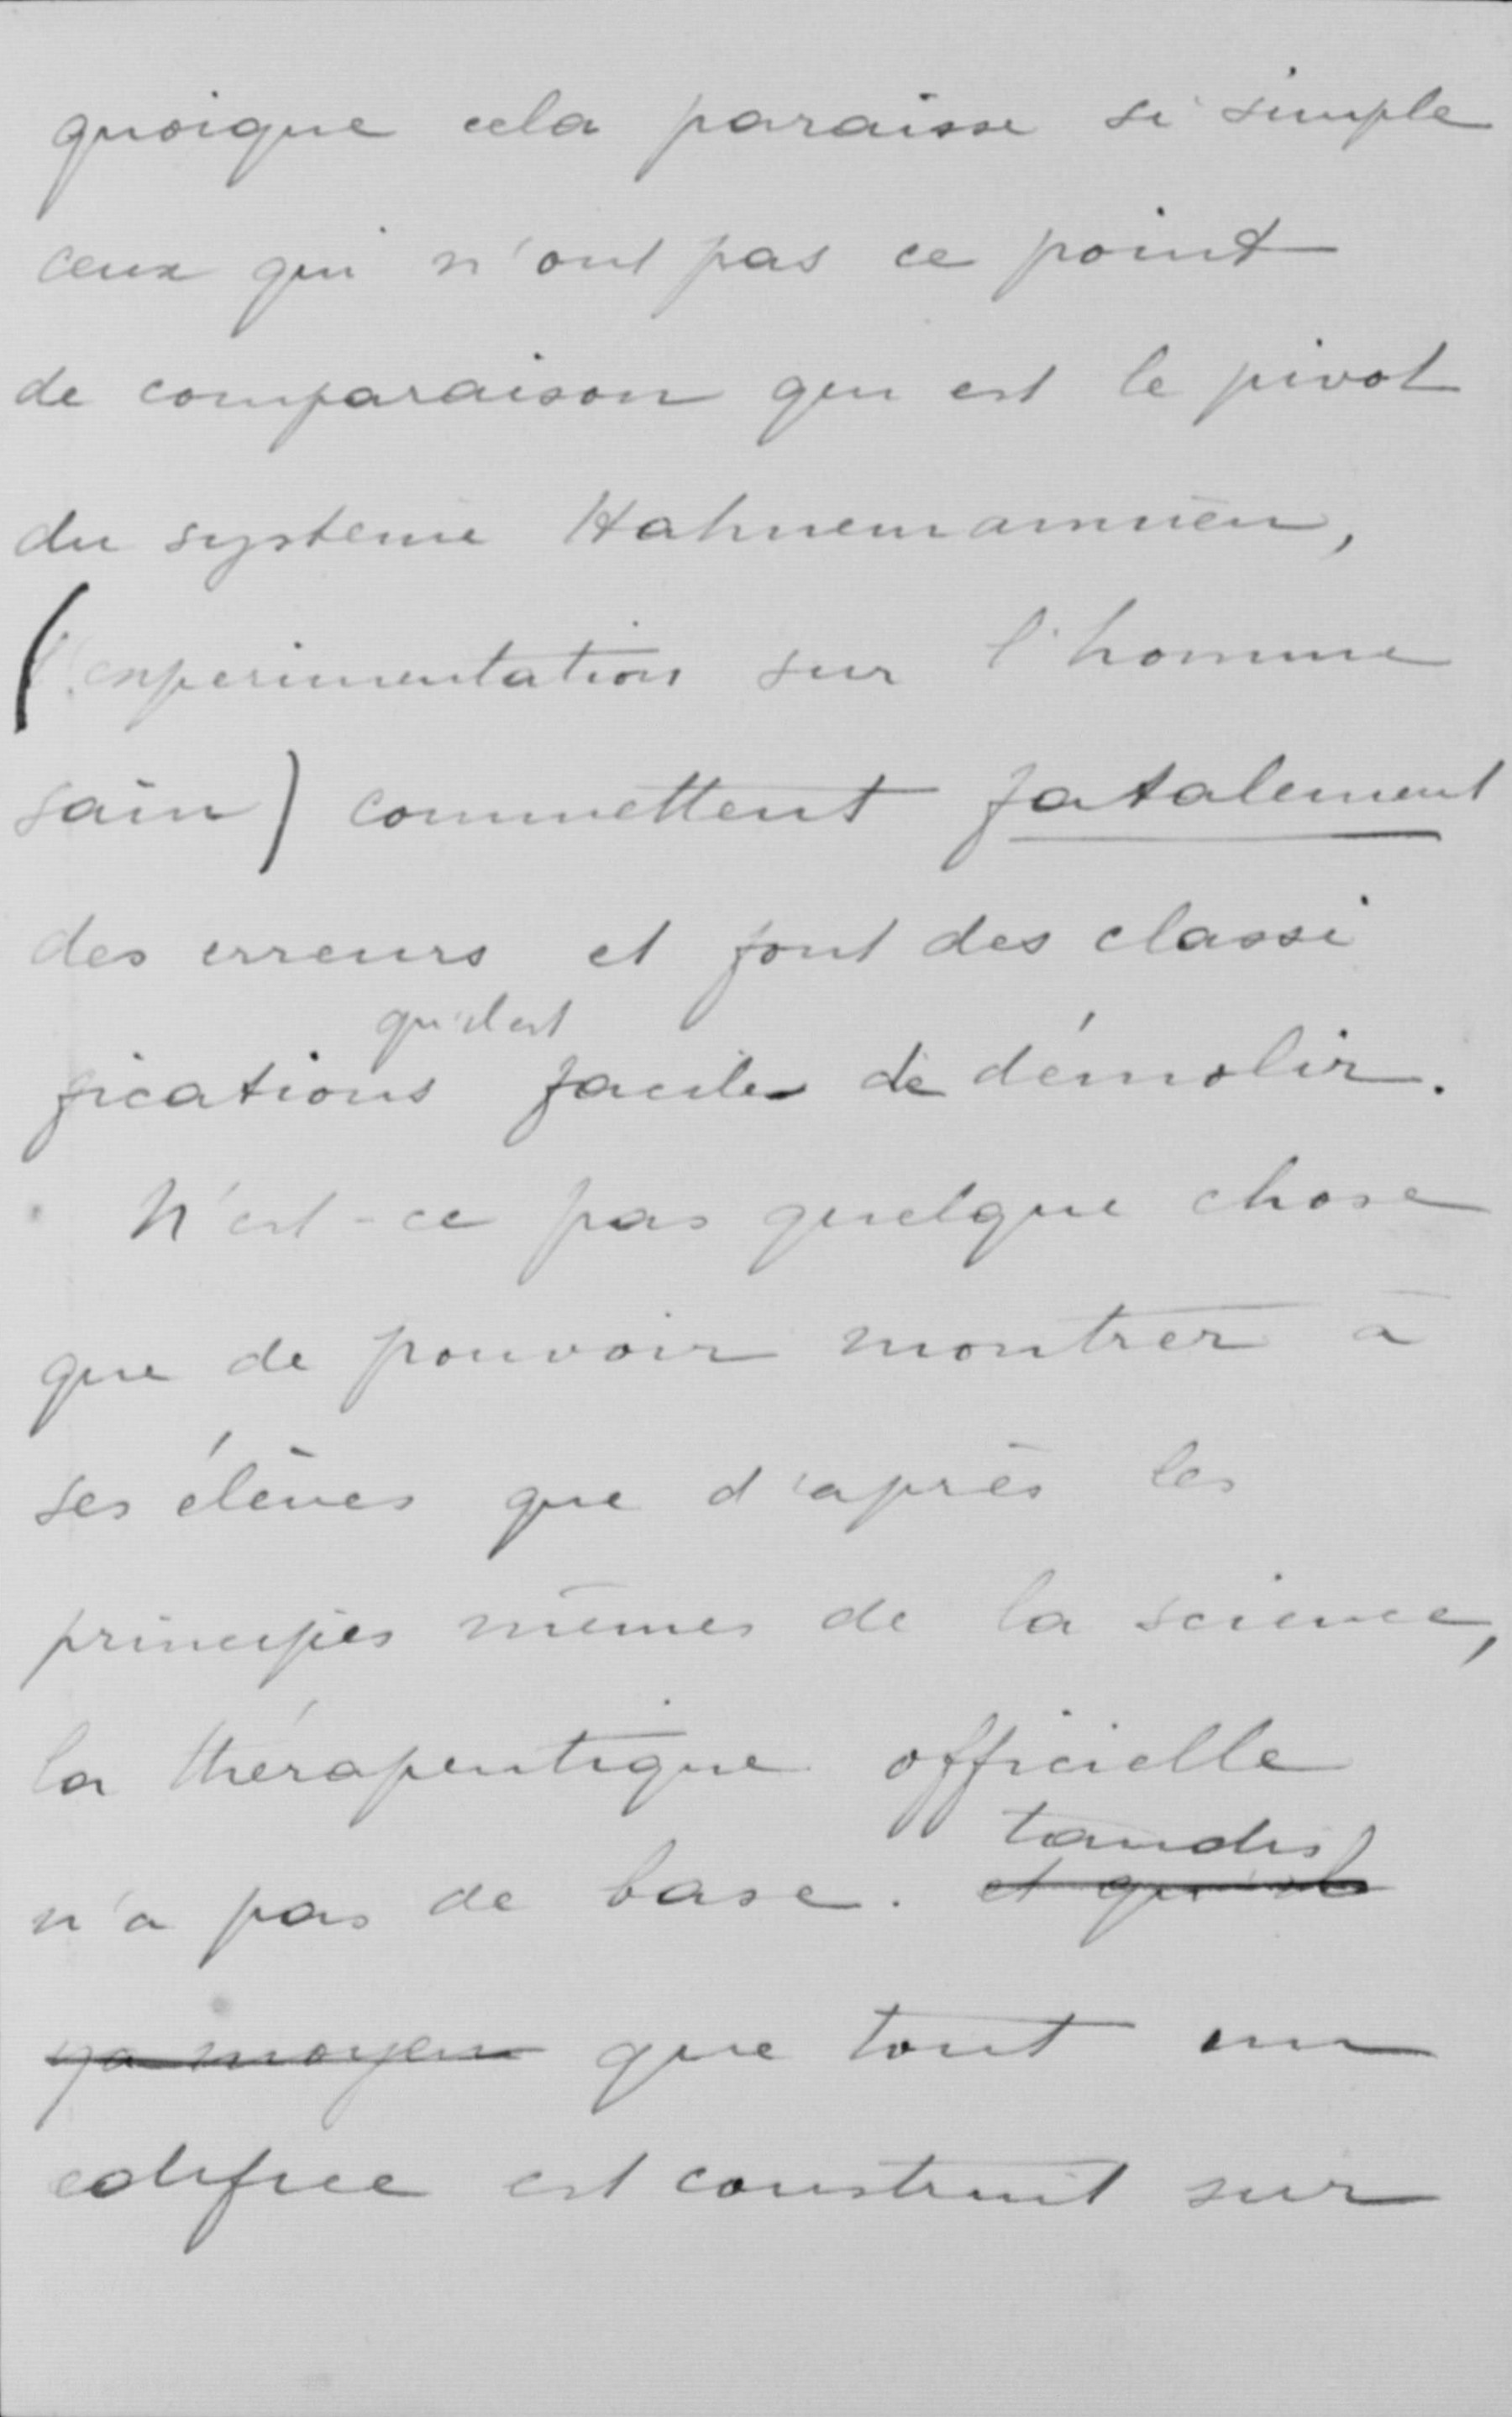 quoique cela paraisse si simple
ceux qui n'ont pas ce point
de comparaison qui est le pivot
du système Hahnemannien,
(l'experimentation sur l'homme
sain) commettent fatalement
des erreurs et font des classi
qu'il est
fications faciles de démolir.
N'est-ce pas quelque chose
que de pouvoir montrer à
ses élèves que d'après les
principes mêmes de la science,
la thérapeutique officielle
tandis
n'a pas de base. et qu'il
y a moyen que tout un
edifice est construit sur